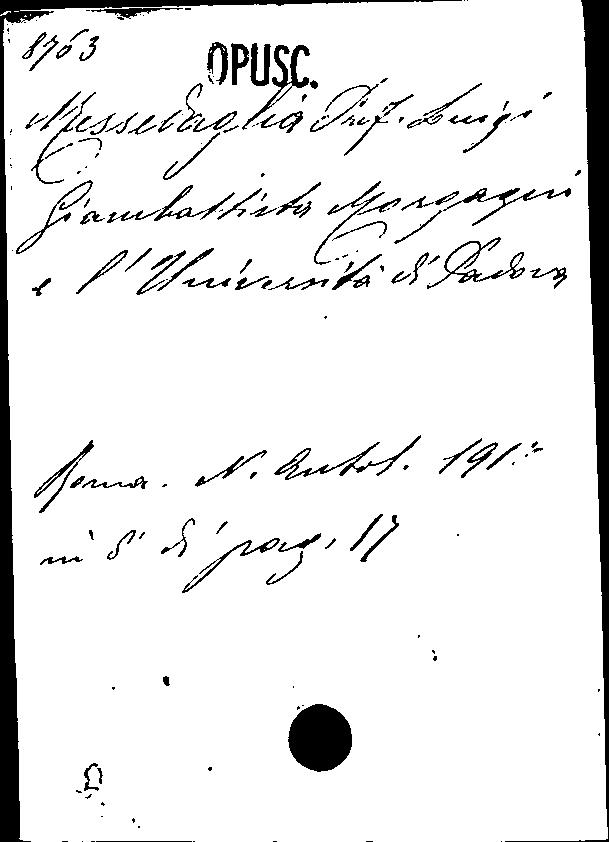 8763
OPUSC.
Messedaglia Prof. Luigi
Giambattista Morgagni
e l'Università di Padova
Roma. N. Antol.
in 8° di pag. 17